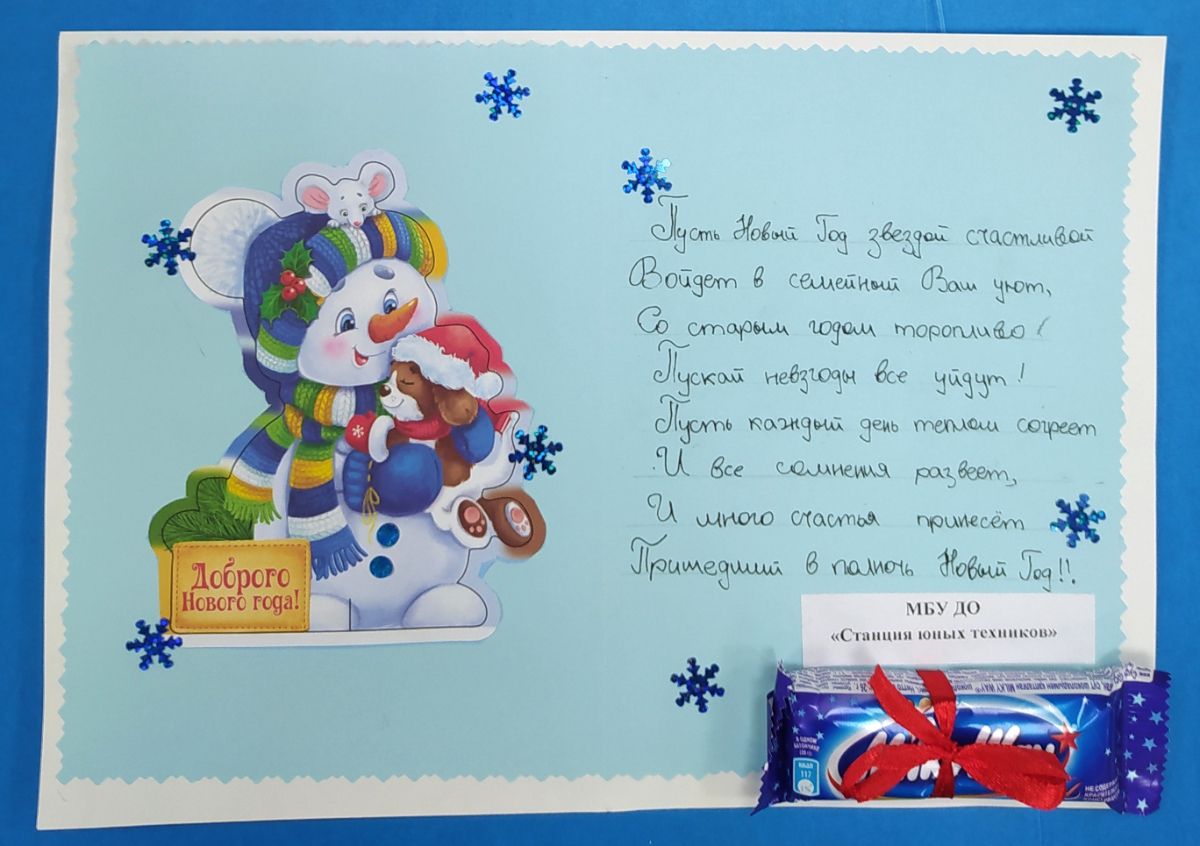 Доброго
Нового года!
Пусть Новый Год звездой счастливой
Войдет в семейный Ваш уют,
Со старым годом торопливо
Пускай невзгоды все уйдут!
Пусть каждый день теплом согреет
И все сомнения развеет,
И много счастья принесёт
Пришедший в полночь Новый Год!!.
МБУ ДО
«Станция юных техников»